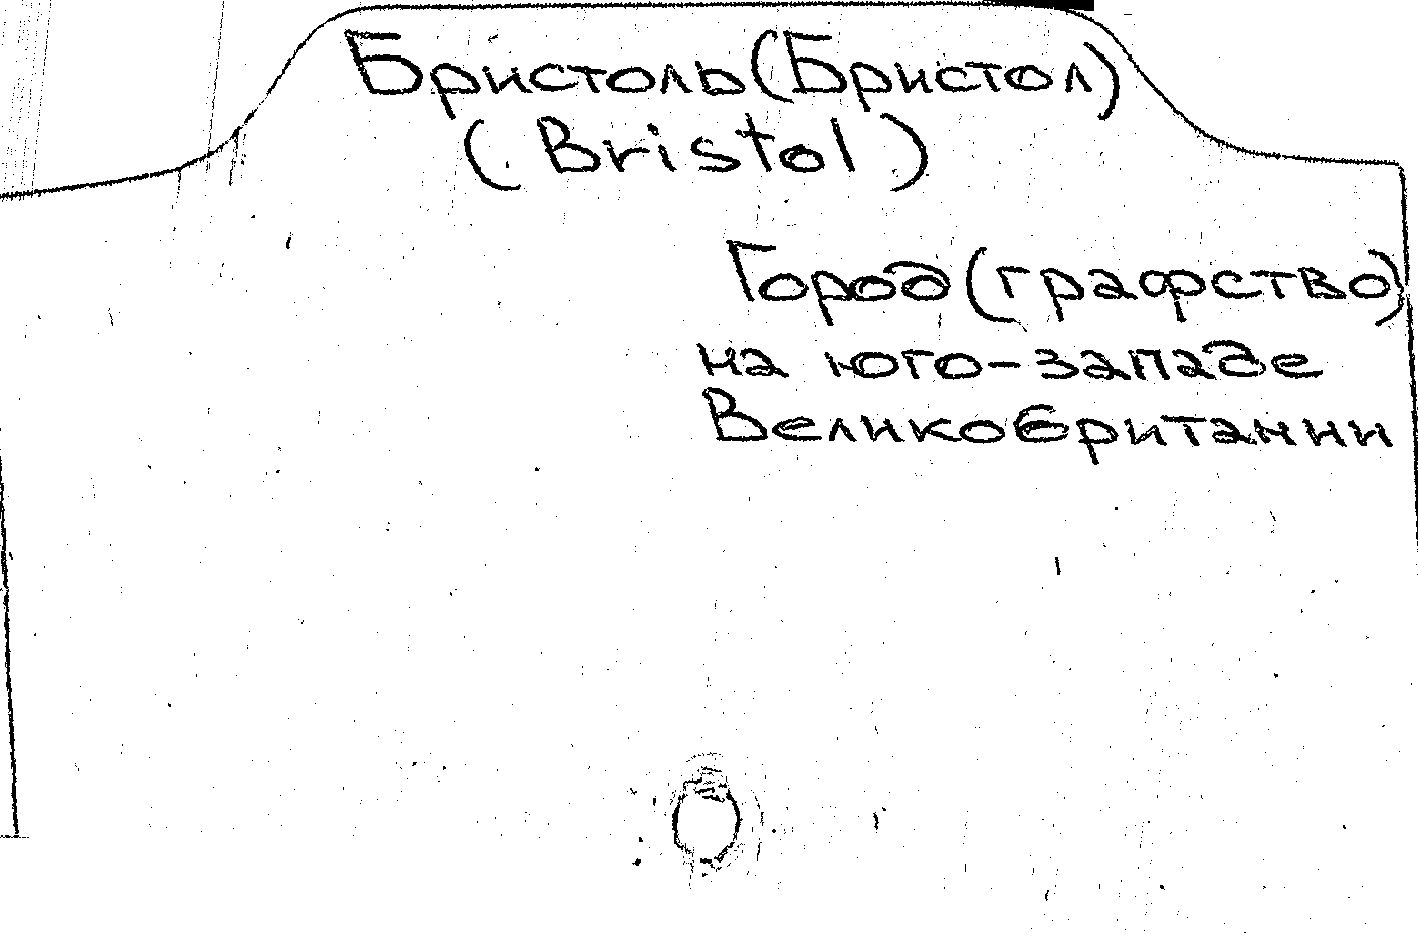 Бристоль (Бристол)
(Bristol)
Город (графство)
на юго-западе
Великобритании